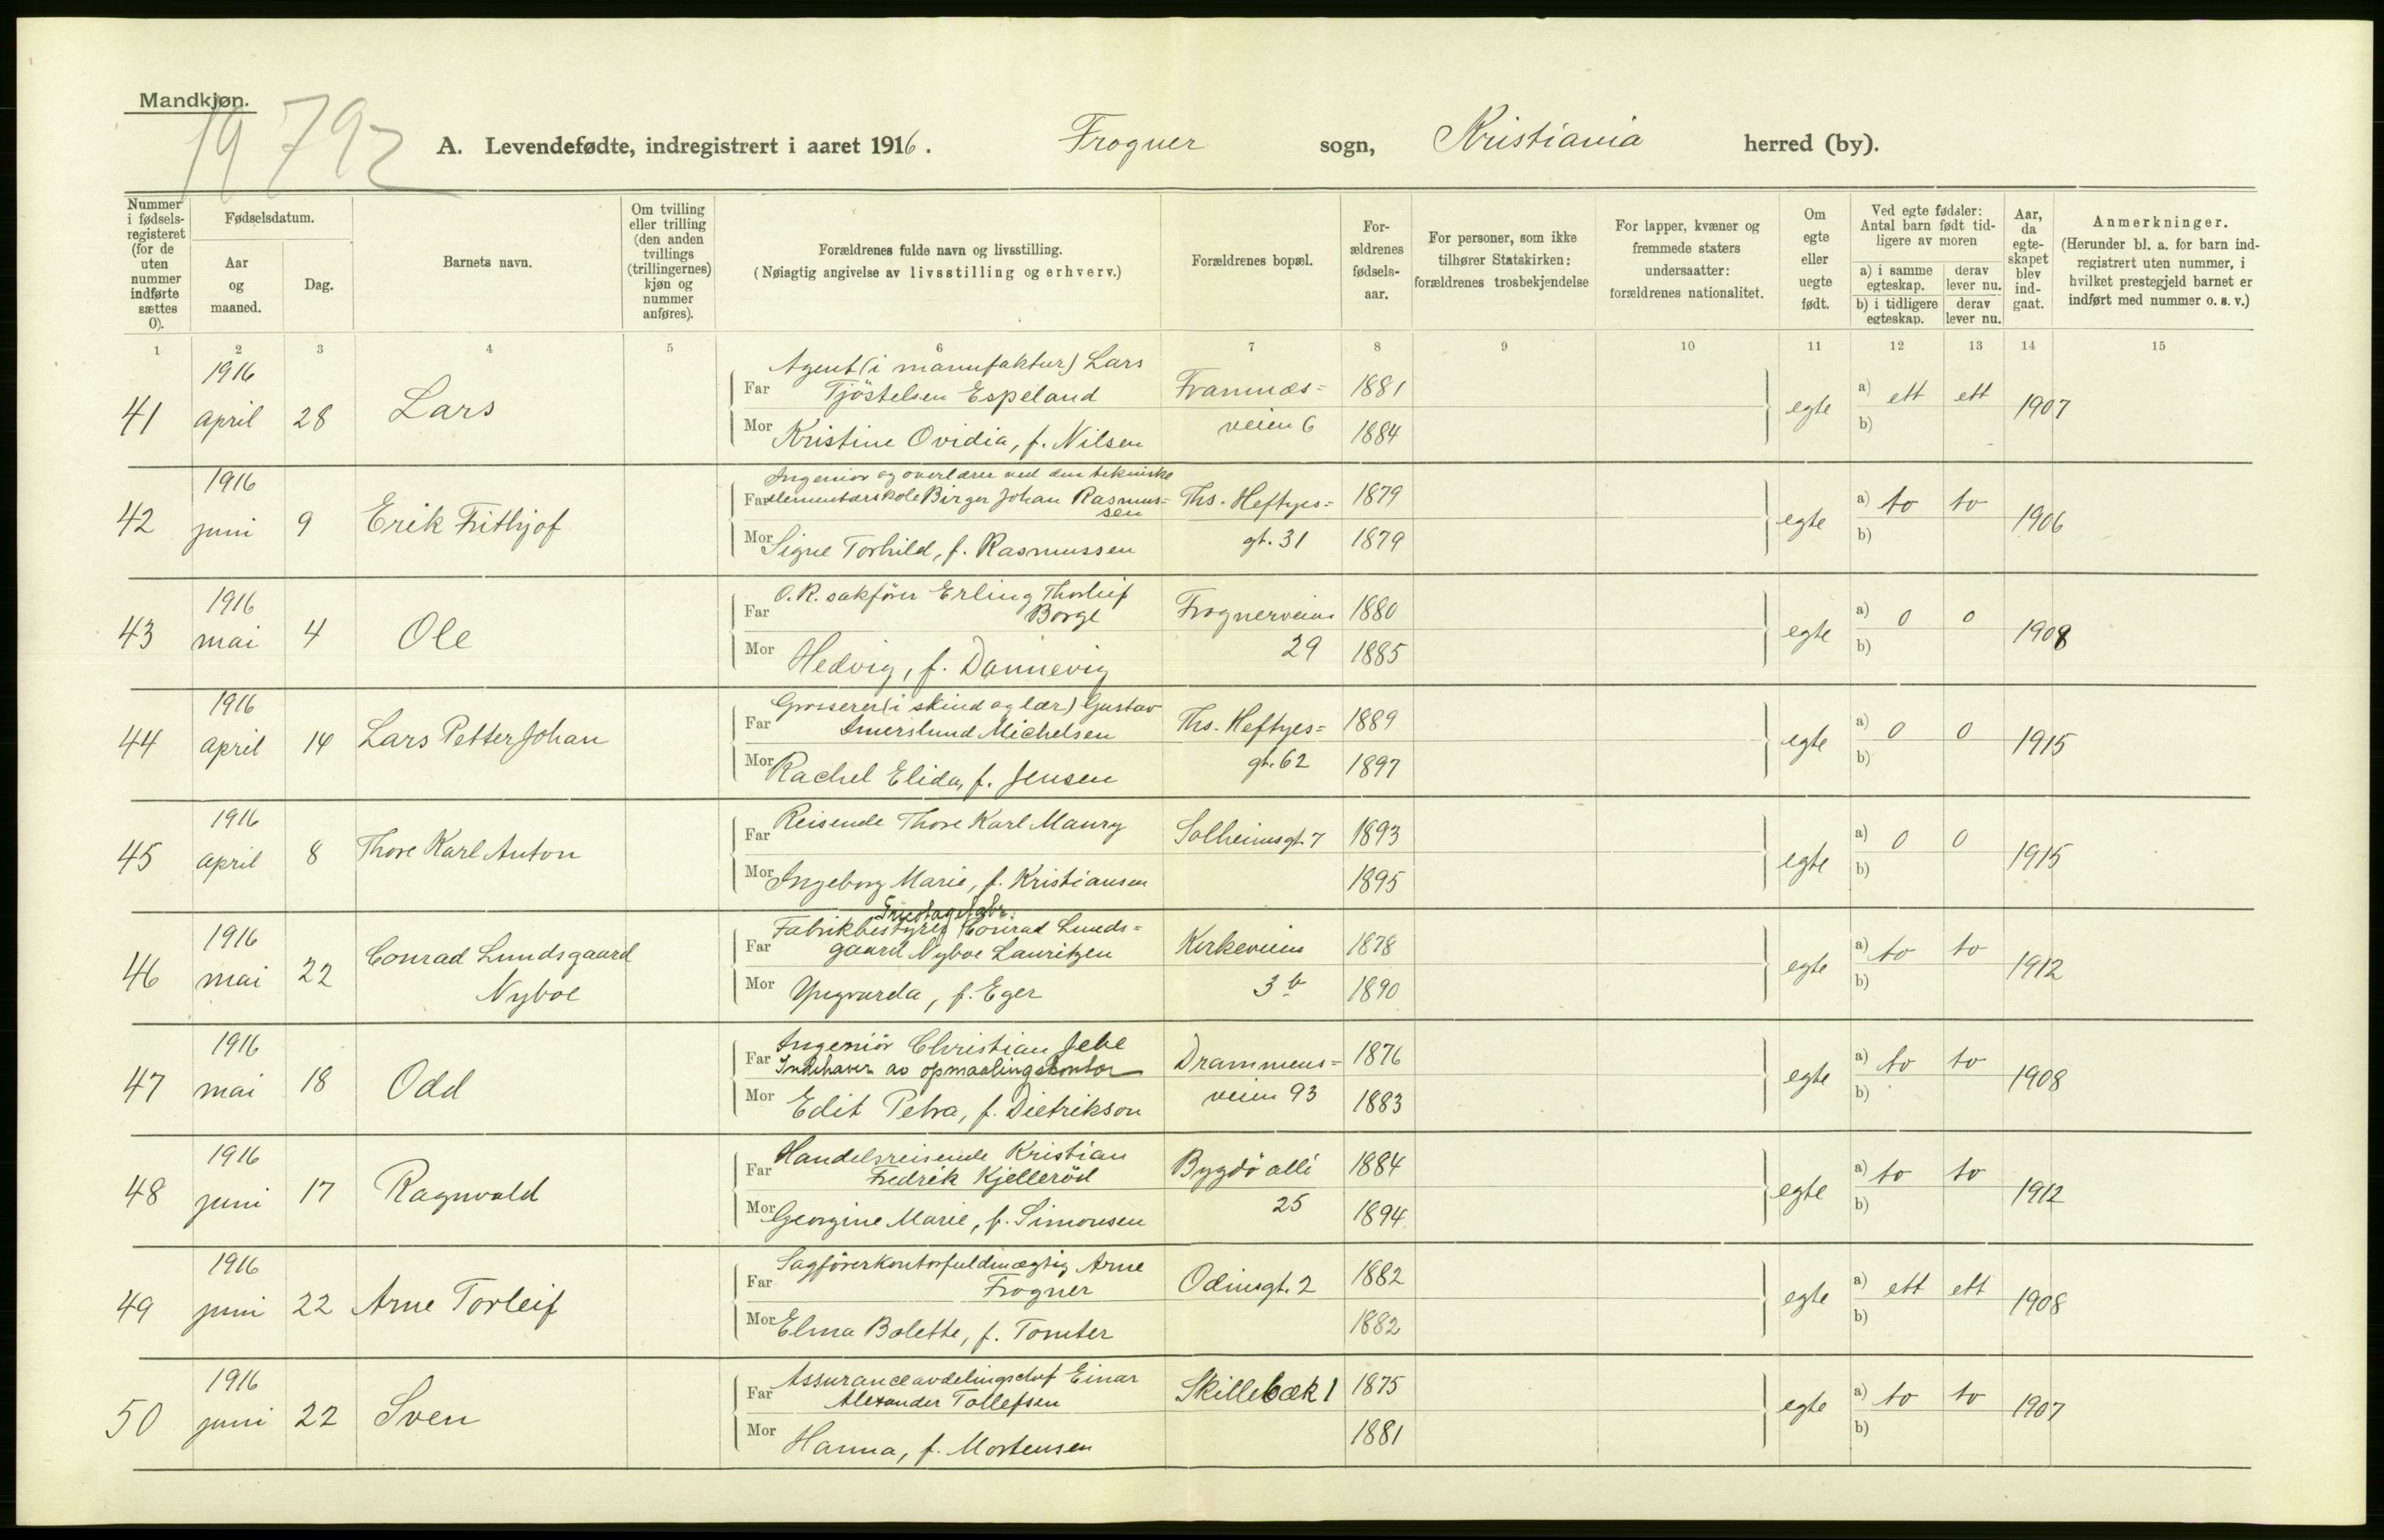 Mandkjøn.
19 792
A. Levendefødte, indregistrert i aaret 1916. Frogner sogn, Kristiania herred (by).
Nummer i fødsels-registeret (for de uten nummer indførte sættes 0).
Fødselsdatum.
Aar og maaned.
Dag.
Barnets navn.
Om tvilling eller trilling (den anden tvillings (trillingernes) kjøn og nummer anføres).
Forældrenes fulde navn og livsstilling.
(Nøiagtig angivelse av livsstilling og erhverv.)
Forældrenes bopæl.
For-ældrenes fødsels-aar.
For personer, som ikke tilhører Statskirken: forældrenes trosbekjendelse
For lapper, kvæner og fremmede staters undersaatter: forældrenes nationalitet.
Om egte eller uegte født.
Ved egte fødsler: Antal barn født tid-ligere av moren
a) i samme egteskap.
derav lever nu.
b) i tidligere egteskap.
derav lever nu.
Aar, da egte-skapet blev ind-gaat.
Anmerkninger.
(Herunder bl. a. for barn ind-registrert uten nummer, i hvilket prestegjeld barnet er indført med nummer o. s. v.)
1 2 3 4 5 6 7 8 9 10 11 12 13 14 15
41 1916 april 28 Lars
Far Agent (i manufaktur) Lars
Tjöstelsen Espeland
Framnæs= 1881
Mor Kristine Ovidia, f. Nilsen
veien 6 1884
egte a) ett ett 1907
b)
42 1916 juni 9 Erik Frithjof
Far Ingeniør og overlærer ved den tekniske
elementærskole Birger Johan Rasmus=
sen
Ths. Heftyes= 1879
Mor Signe Torhild, f. Rasmussen
gt. 31 1879
egte a) to to 1906
b)
43 1916 mai 4 Ole
Far O.R. sakfører Erling Thorleif
Borge
Frognerveien 1880
Mor Hedvig, f. Dannevig
29 1885
egte a) 0 0 1908
b)
44 1916 april 14 Lars Petter Johan
Far Grosserer (i skind og lær) Gustav
Imerslund Michelsen
Ths. Heftyes= 1889
Mor Rachel Elida, f. Jensen
gt. 62 1897
egte a) 0 0 1915
b)
45 1916 april 8 Thore Karl Anton
Far Reisende Thore Karl Maury
Solheimsgt. 7 1893
Mor Ingeborg Marie, f. Kristiansen
1895
egte a) 0 0 1915
b)
46 1916 mai 22 Conrad Lundsgaard
Nyboe
Tricotagefabr.
Far Fabrikbestyrer Conrad Lunds=
gaard Nyboe Lauritzen
Kirkeveien 1878
Mor Yngvarda, f. Eger
3 b 1890
egte a) to to 1912
b)
47 1916 mai 18 Odd
Far Ingeniör Christian Jebe
Indehaver av opmaalingskontor
Drammens= 1876
Mor Edit Petra, f. Dietrikson
veien 93 1883
egte a) to to 1908
b)
48 1916 juni 17 Ragnvald
Far Handelsreisende Kristian
Fredrik Kjelleröd
Bygdö allé 1884
Mor Georgine Marie, f. Simonsen
25 1894
egte a) to to 1912
b)
49 1916 juni 22 Arne Torleif
Far Sagförerkontorfuldmægtig Arne
Frogner
Odinsgt. 2 1882
Mor Elma Bolette, f. Tomter
1882
egte a) ett ett 1908
b)
50 1916 juni 22 Sven
Far Assuranceavdelingschef Einar
Alexander Tollefsen
Skillebæk 1 1875
Mor Hanna, f. Mortensen
1881
egte a) to to 1907
b)